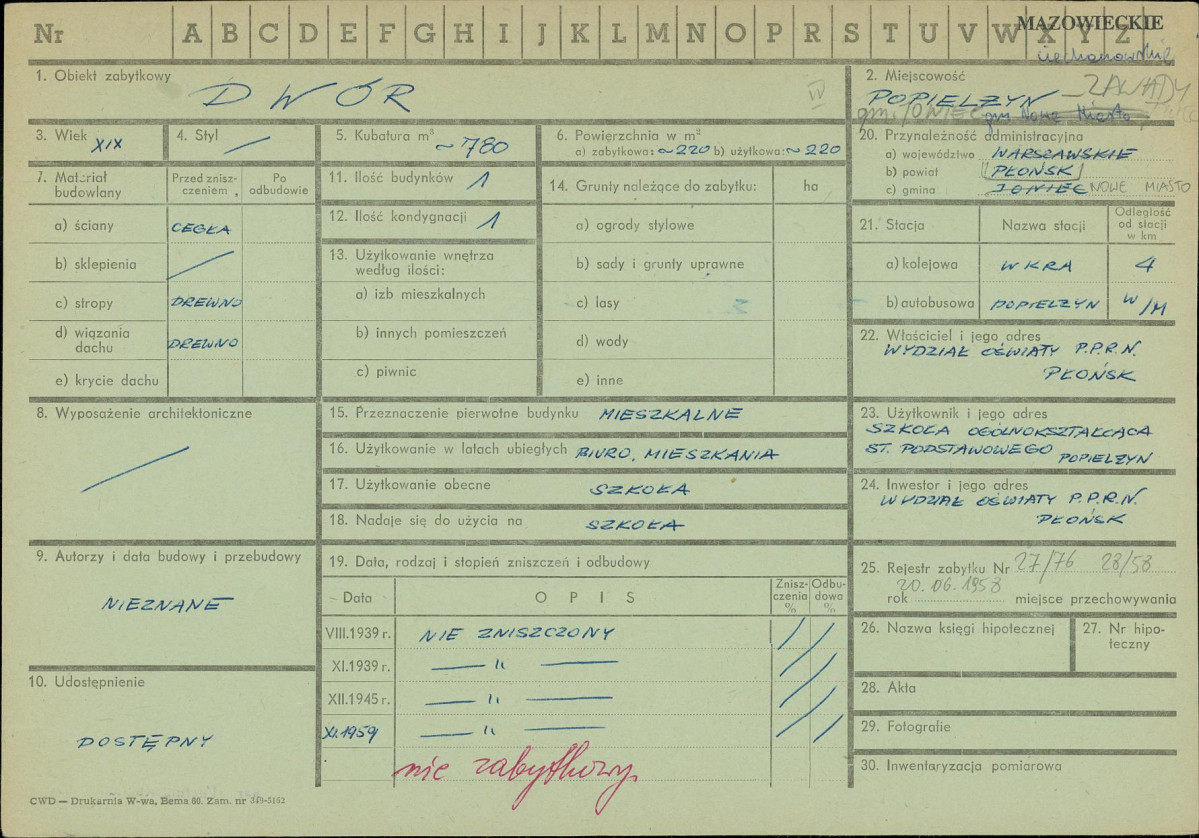 Nr A B C D E F G H I J K L M N O P R S T U V W X Y Z
MAZOWIECKIE
ciechanowskie
1. Obiekt zabytkowy
DWÓR
IV
2. Miejscowość
POPIELŻYN - ZAWADY
gm. JONIEC gm. Nowe Miasto
3. Wiek XIX
4. Styl
5. Kubatura m³ ~780
6. Powierzchnia w m²
a) zabytkowa: ~220 b) użytkowa: ~220
20. Przynależność administracyjna
a) województwo WARSZAWSKIE
b) powiat PŁOŃSK
c) gmina JONIEC NOWE MIASTO
7. Materiał budowlany
Przed zniszczeniem
Po odbudowie
a) ściany CEGŁA
b) sklepienia
c) stropy DREWNO
d) wiązania dachu DREWNO
e) krycie dachu
11. Ilość budynków 1
12. Ilość kondygnacji 1
13. Użytkowanie wnętrza
według ilości:
a) izb mieszkalnych
b) innych pomieszczeń
c) piwnic
14. Grunty należące do zabytku: ha
a) ogrody stylowe
b) sady i grunty uprawne
c) lasy
d) wody
e) inne
21. Stacja Nazwa stacji Odległość od stacji w km
a) kolejowa WKRA 4
b) autobusowa POPIELŻYN W/M
22. Właściciel i jego adres
WYDZIAŁ OŚWIATY P.P.R.N.
PŁOŃSK
8. Wyposażenie architektoniczne
15. Przeznaczenie pierwotne budynku MIESZKALNE
16. Użytkowanie w latach ubiegłych BIURO, MIESZKANIA
17. Użytkowanie obecne SZKOŁA
18. Nadaje się do użycia na SZKOŁA
23. Użytkownik i jego adres
SZKOŁA OGÓLNOKSZTAŁCĄCA
ST. PODSTAWOWEGO POPIELŻYN
24. Inwestor i jego adres
WYDZIAŁ OŚWIATY P.P.R.N.
PŁOŃSK
9. Autorzy i data budowy i przebudowy
NIEZNANE
10. Udostępnienie
DOSTĘPNY
19. Data, rodzaj i stopień zniszczeń i odbudowy
Data OPIS Zniszczenia % Odbudowa %
VIII.1939 r. NIE ZNISZCZONY
XI.1939 r. — " —
XII.1945 r. — " —
XI.1959 — " —
nie zabytkowy.
25. Rejestr zabytku Nr 27/76 28/58
20.06.1958
rok miejsce przechowywania
26. Nazwa księgi hipotecznej
27. Nr hipoteczny
28. Akta
29. Fotografie
30. Inwentaryzacja pomiarowa
CWD — Drukarnia W-wa, Bema 60. Zam. nr 349-5162